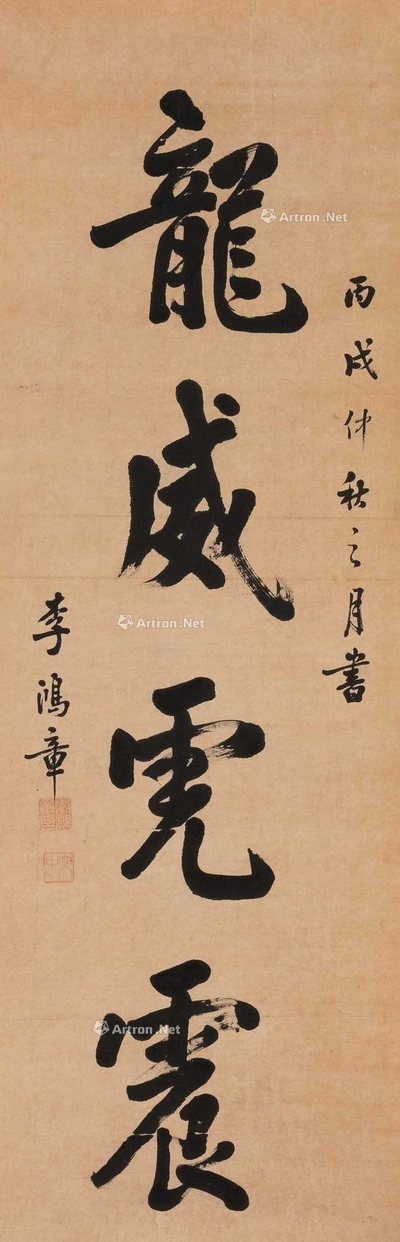 丙戌仲秋之月書
龍威虎震
李鴻章
Artron.Net
Artron.Net
Artron.Net